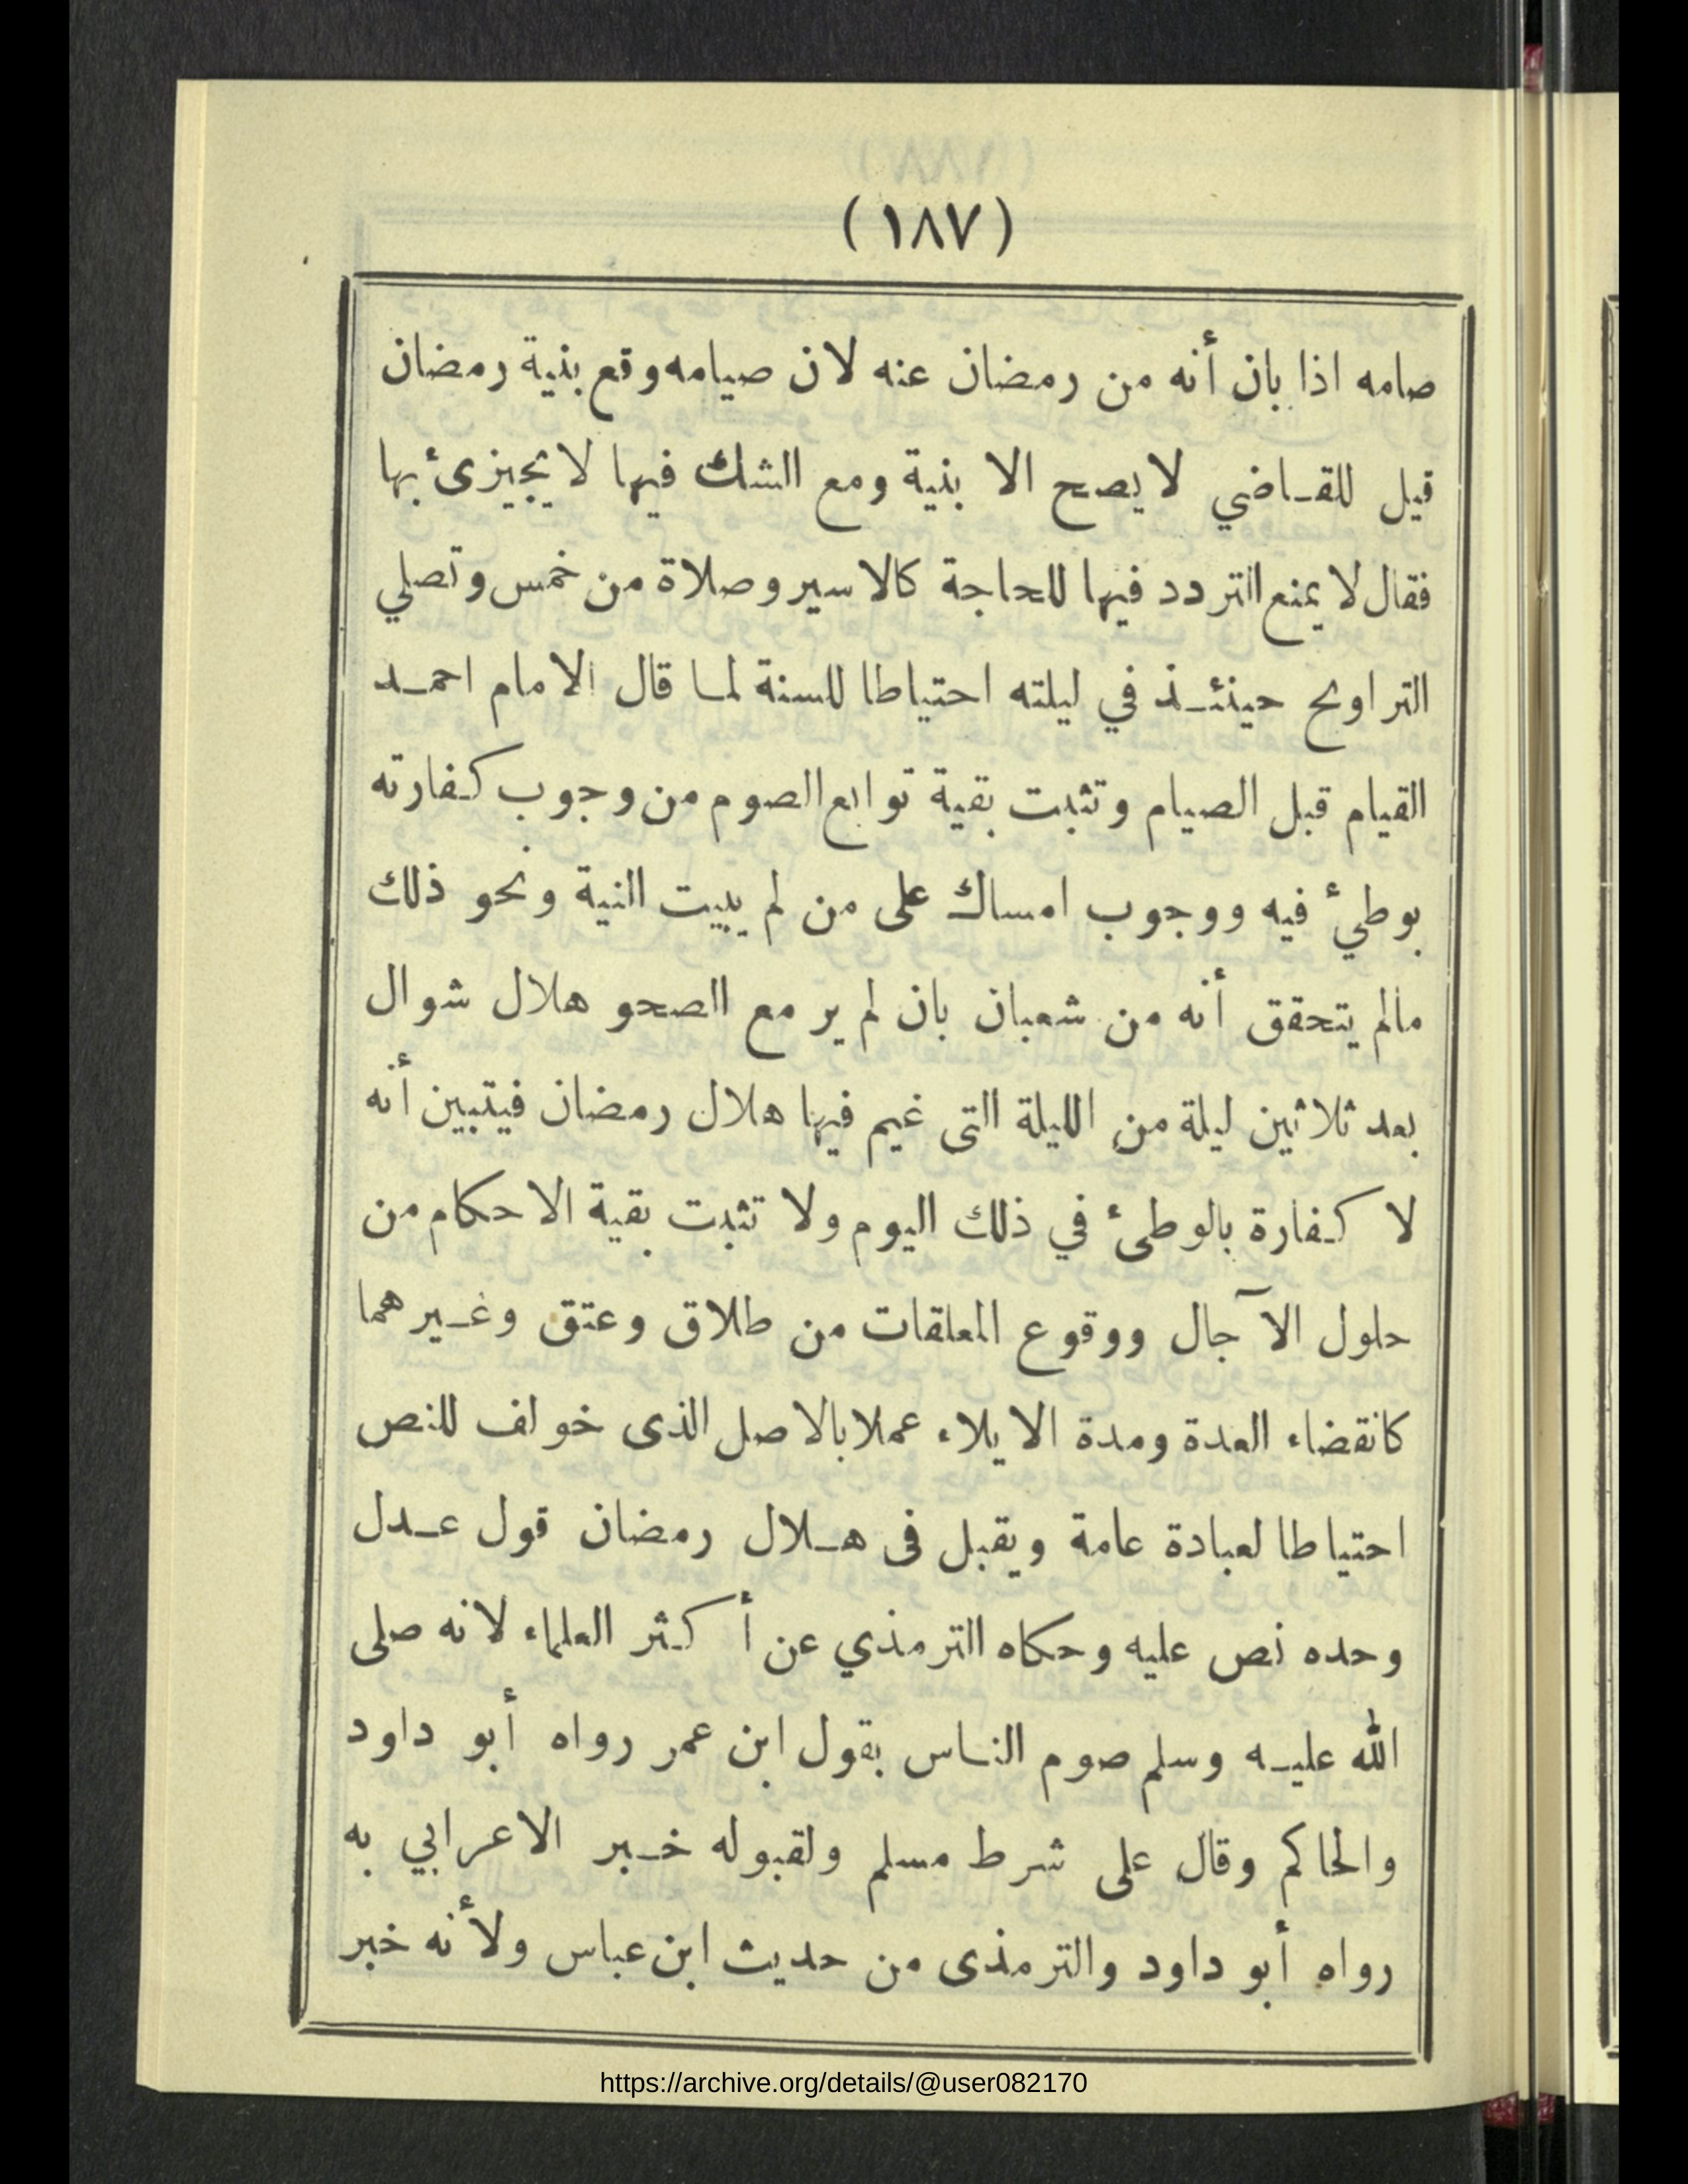 (١٨٧)
صامه اذا بان أنه من رمضان عنه لان صيامه وقع بنية رمضان
قيل للقـاضي لا يصح الا بنية ومع الشك فيها لا يجيزئ بها
فقال لا يمنع التردد فيها للحاجة كالاسير وصلاة من خمس وتصلي
التراويح حينئـذ في ليلته احتياطا للسنة لمـا قال الامام احمـد
القيام قبل الصيام وتثبت بقية توابع الصوم من وجوب كفارته
بوطيء فيه ووجوب امساك على من لم يبيت النية ونحو ذلك
مالم يتحقق أنه من شعبان بان لم ير مع الصحو هلال شوال
بعد ثلاثين ليلة من الليلة التى غيم فيها هلال رمضان فيتبين أنه
لا كفارة بالوطئ في ذلك اليوم ولا تثبت بقية الاحكام من
حلول الآجال ووقوع المعلقات من طلاق وعتق وغـيرهما
كانقضاء العدة ومدة الايلاء عملا بالاصل الذى خولف للنص
احتياطا لعبادة عامة ويقبل فى هـلال رمضان قول عـدل
وحده نص عليه وحكاه الترمذي عن أكثر العلماء لانه صلى
الله عليـه وسلم صوم النـاس بقول ابن عمر رواه أبو داود
والحاكم وقال على شرط مسلم ولقبوله خـبر الاعرابي به
رواه أبو داود والترمذى من حديث ابن عباس ولأنه خبر
https://archive.org/details/@user082170